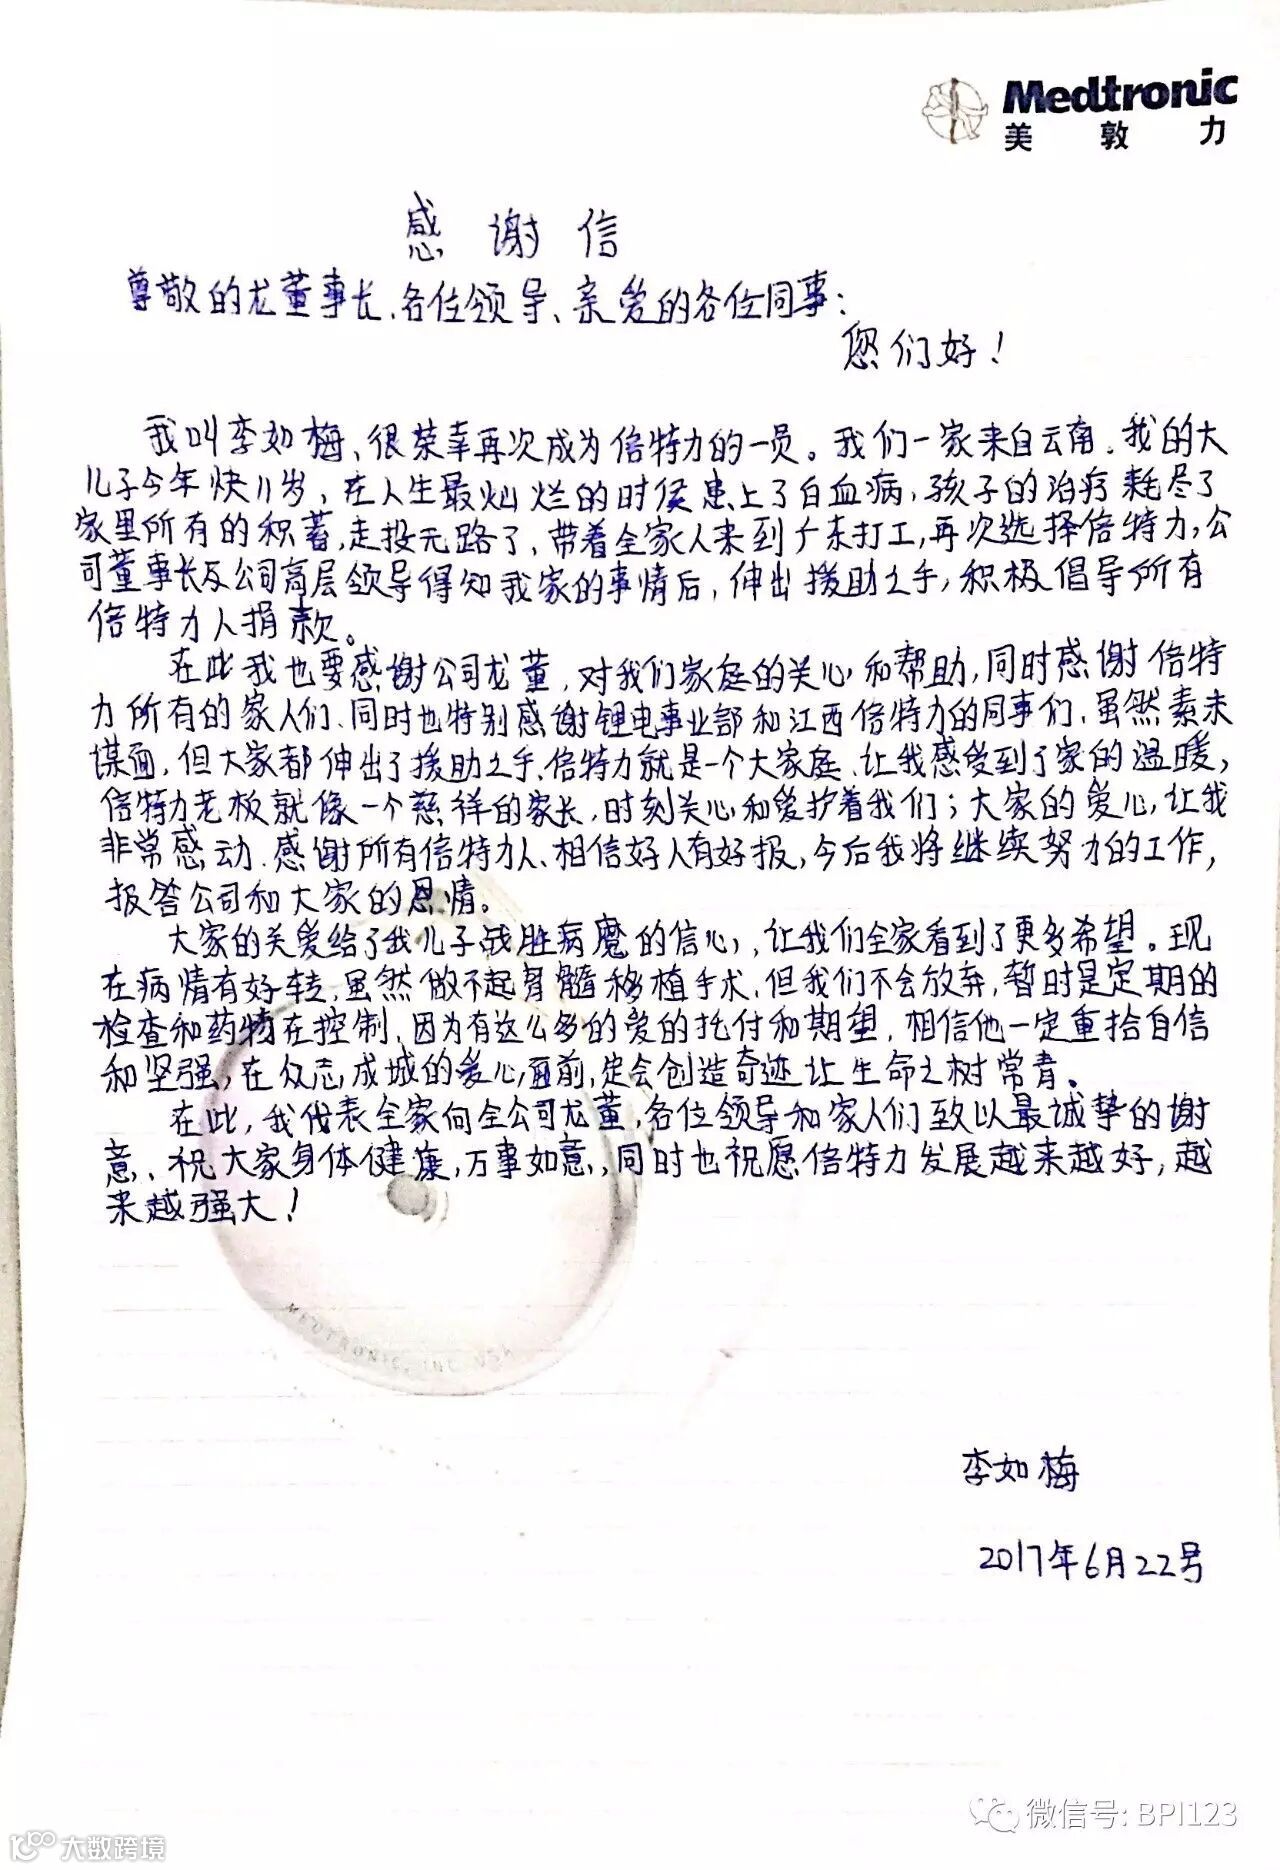 Medtronic
美敦力
感谢信
尊敬的龙董事长、各位领导、亲爱的各位同事：
您们好！
我叫李如梅、很荣幸再次成为倍特力的一员。我们一家来自云南、我的大
儿子今年快11岁，在人生最灿烂的时候患上了白血病，孩子的治疗耗尽了
家里所有的积蓄，走投无路了、带着全家人来到广东打工，再次选择倍特力，公
司董事长及公司高层领导得知我家的事情后，伸出援助之手，积极倡导所有
倍特力人捐款。
在此我也要感谢公司龙董，对我们家庭的关心和帮助，同时感谢倍特
力所有的家人们、同时也特别感谢锂电事业部和江西倍特力的同事们、虽然素未
谋面，但大家都伸出了援助之手、倍特力就是一个大家庭、让我感受到了家的温暖，
倍特力老板就像一个慈祥的家长，时刻关心和爱护着我们；大家的爱心，让我
非常感动、感谢所有倍特力人、相信好人有好报，今后我将继续努力的工作，
报答公司和大家的恩情。
大家的关爱给了我儿子战胜病魔的信心，让我们全家看到了更多希望。现
在病情有好转，虽然做不起骨髓移植手术，但我们不会放弃，暂时是定期的
检查和药物在控制，因为有这么多的爱的托付和期望，相信他一定重拾自信
和坚强，在众志成城的爱心面前，定会创造奇迹让生命之树常青。
在此，我代表全家向全公司龙董，各位领导和家人们致以最诚挚的谢
意、祝大家身体健康，万事如意，同时也祝愿倍特力发展越来越好，越
来越强大！
MEDTRONIC, INC. USA
李如梅
2017年6月22号
微信号: BPI123
大数跨境